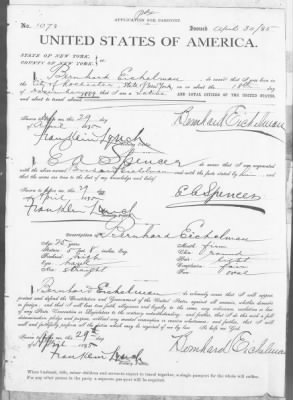 APPLICATION FOR PASSPORT.
No. 1073 Issued April 30/85
UNITED STATES OF AMERICA.
STATE OF NEW YORK,
COUNTY OF NEW YORK,
I, Bernhard Eichelman, do swear that I was born in
the City of Rochester, State of New York, on or about the day
of ; that I am a Native AND LOYAL CITIZEN OF THE UNITED STATES,
and about to travel abroad
Sworn to before me, this 29
day of April 1885 Bernhard Eichelman
Franklin Lynch
Notary Public
I, E. A. Spencer, do swear that I am acquainted
with the above named Bernhard Eichelman and with the facts stated by him, and
that the same are true to the best of my knowledge and belief.
Sworn to before me, this 29th
day of April 1885 E. A. Spencer
Franklin Lynch
Notary Public
Description of Bernhard Eichelman
Age: 25 years Mouth: firm
Stature: 5 feet 8 inches, Eng. Chin:
Forehead: high Hair: light
Eyes: Complexion: fair
Nose: straight Face: oval
I, Bernhard Eichelman, do solemnly swear that I will support,
protect and defend the Constitution and Government of the United States against all enemies, whether domestic
or foreign; and that I will bear true faith, allegiance and loyalty to the same, any ordinance, resolution or law
of any State Convention or Legislature to the contrary notwithstanding; and further, that I do this with a full
determination, pledge and purpose, without any mental reservation or evasion whatsoever; and further, that I will
well and faithfully perform all the duties which may be required of me by law. So help me God.
Sworn to before me, this 29th
day of April 1885 Bernhard Eichelman
Franklin Lynch
Notary Public
When husband, wife, minor children and servants expect to travel together, a single passport for the whole will suffice.
For any other person in the party a separate passport will be required.